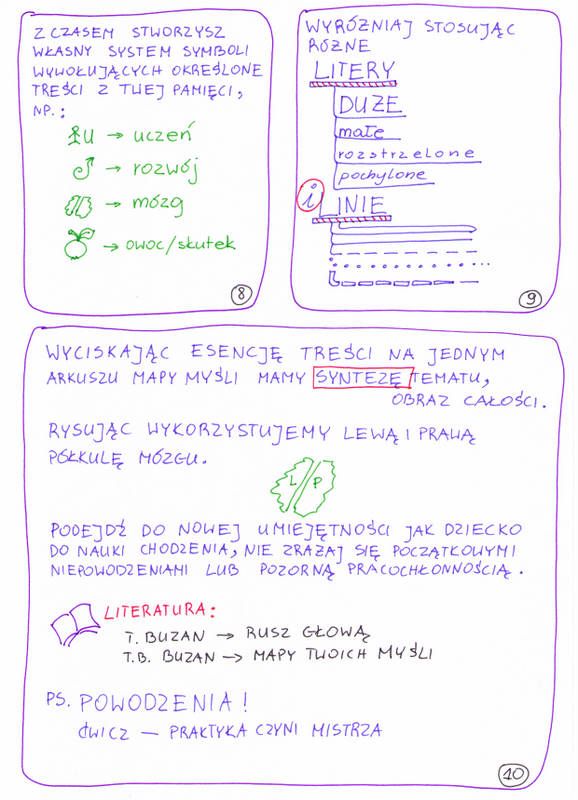 Z CZASEM STWORZYSZ
WŁASNY SYSTEM SYMBOLI
WYWOŁUJĄCYCH OKREŚLONE
TREŚCI Z TWEJ PAMIĘCI,
NP.:
U → uczeń
→ rozwój
→ mózg
→ owoc/skutek
8
WYRÓŻNIAJ STOSUJĄC
RÓŻNE
LITERY
DUŻE
małe
rozstrzelone
pochylone
i
LINIE
9
WYCISKAJĄC ESENCJĘ TREŚCI NA JEDNYM
ARKUSZU MAPY MYŚLI MAMY SYNTEZĘ TEMATU,
OBRAZ CAŁOŚCI.
RYSUJĄC WYKORZYSTUJEMY LEWĄ I PRAWĄ
PÓŁKULĘ MÓZGU.
L P
PODEJDŹ DO NOWEJ UMIEJĘTNOŚCI JAK DZIECKO
DO NAUKI CHODZENIA, NIE ZRAŻAJ SIĘ POCZĄTKOWYMI
NIEPOWODZENIAMI LUB POZORNĄ PRACOCHŁONNOŚCIĄ.
LITERATURA:
T. BUZAN → RUSZ GŁOWĄ
T.B. BUZAN → MAPY TWOICH MYŚLI
PS. POWODZENIA!
ĆWICZ — PRAKTYKA CZYNI MISTRZA
10